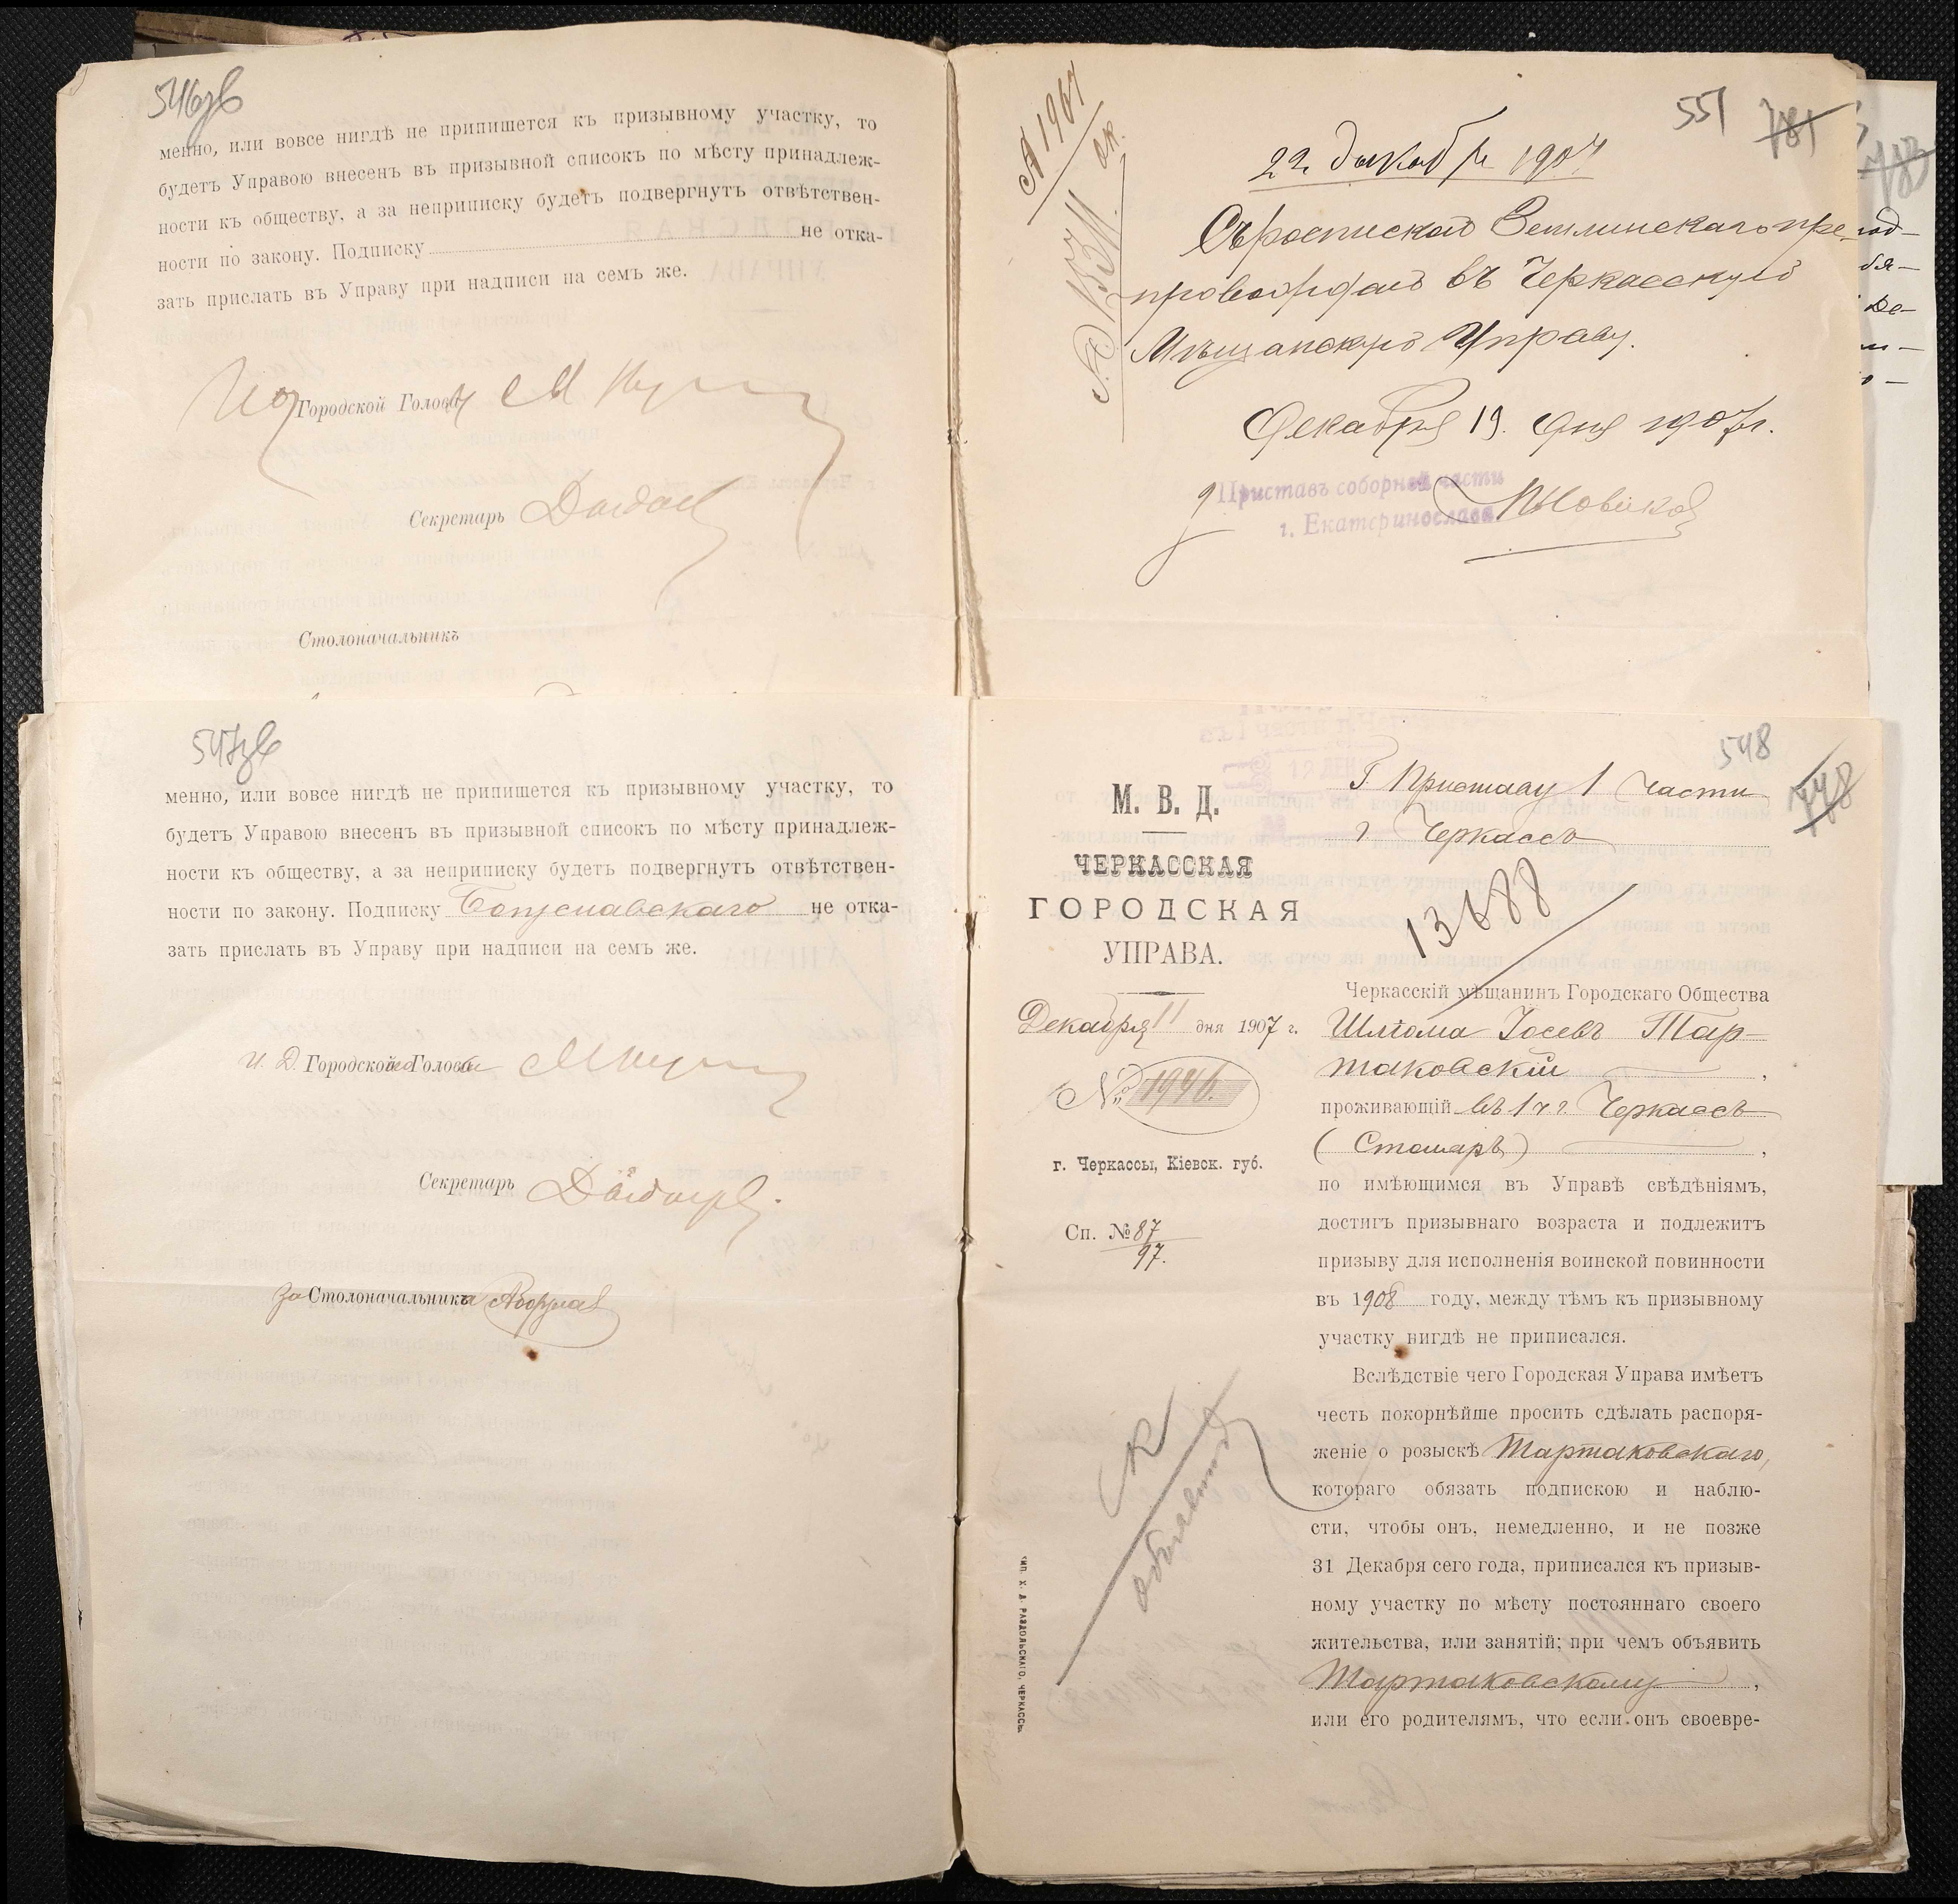 546зв
менно, или вовсе нигдѣ не припишется къ призывному участку, то
будетъ Управою внесенъ въ призывной списокъ по мѣсту принадлеж-
ности къ обществу, а за неприписку будетъ подвергнутъ отвѣтствен-
ности по закону. Подписку не отка-
зать прислать въ Управу при надписи на семъ же.
Городской Голова
Секретарь
Столоначальникъ
551
781
783
22 декабря 1907
Съ роспиской Землинскаго пре-
провождаю въ Черкасскую
Мѣщанскую Управу.
Декабря 19. дня 1907 г.
Приставъ соборной части
г. Екатеринослава
547зв
менно, или вовсе нигдѣ не припишется къ призывному участку, то
будетъ Управою внесенъ въ призывной списокъ по мѣсту принадлеж-
ности къ обществу, а за неприписку будетъ подвергнутъ отвѣтствен-
ности по закону. Подписку Богуславскаго не отка-
зать прислать въ Управу при надписи на семъ же.
И. Д. Городского Головы
Секретарь
за Столоначальника
548
778
М. В. Д.
ЧЕРКАССКАЯ
ГОРОДСКАЯ
УПРАВА.
Декабря 11 дня 1907 г.
№ 1946.
г. Черкассы, Кіевск. губ.
Сп. № 87
97.
Г Приставу 1 части
г Черкассъ
13688
Черкасскій мѣщанинъ Городскаго Общества
Шліома Іосевъ Тар-
таковскій,
проживающій въ 1 ч г. Черкассъ
(Столяръ),
по имѣющимся въ Управѣ свѣдѣніямъ,
достигъ призывнаго возраста и подлежитъ
призыву для исполненія воинской повинности
въ 1908 году, между тѣмъ къ призывному
участку нигдѣ не приписался.
Вслѣдствіе чего Городская Управа имѣетъ
честь покорнѣйше просить сдѣлать распоря-
женіе о розыскѣ Тартаковскаго,
котораго обязать подпискою и наблю-
сти, чтобы онъ, немедленно, и не позже
31 Декабря сего года, приписался къ призыв-
ному участку по мѣсту постояннаго своего
жительства, или занятій; при чемъ объявить
Тартаковскому,
или его родителямъ, что если онъ своевре-
ТИП. Х. Д. РАЗДОЛЬСКАГО, ЧЕРКАССЫ.